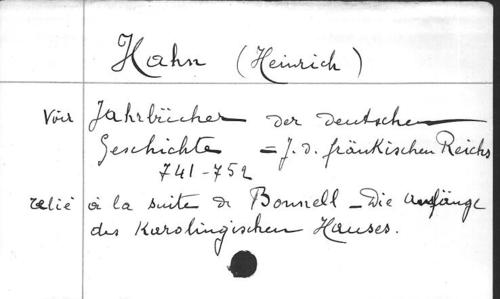 Hahn (Heinrich)
Voir Jahrbücher der deutschen
Geschichte = J. d. fränkischen Reichs
741-752
relié à la suite de Bonnell - Die Anfänge
des Karolingischen Hauses.